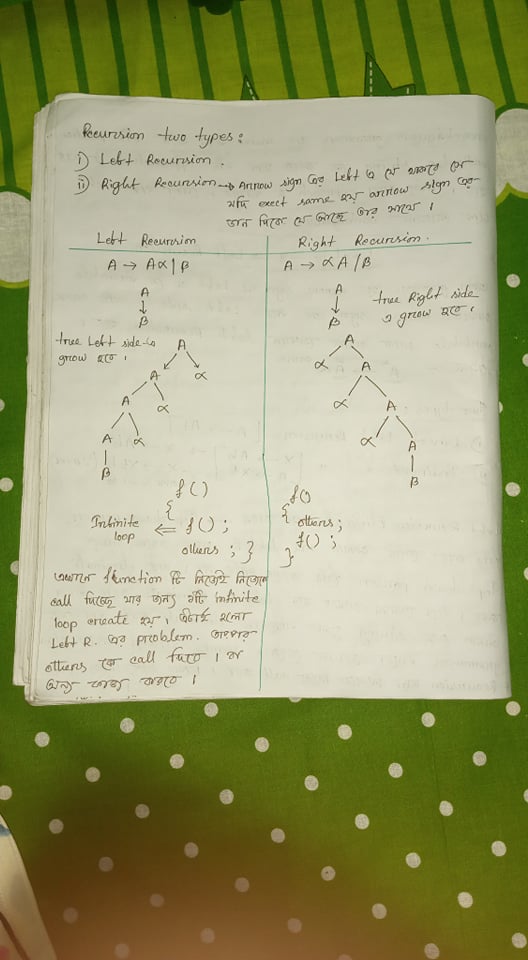 Recursion two types:
i) Left Recursion.
ii) Right Recursion → Arrow sign এর Left এ যে থাকবে সে
যদি exect same হয় arrow sign এর
ডান দিকে যে আছে তার সাথে।
Left Recursion
A → Aα | β
A
↓
β
tree Left side-এ
grow হবে।
A
A α
A α
A α
β
f()
{
Infinite loop ⇐ f();
others; }
এখানে function টি নিজেই নিজেকে
call দিচ্ছে যার জন্য এটি infinite
loop create হয়। এটাই হলো
Left R. এর problem. তারপর
others কে call দিবে। বা
অন্য কাজ করবে।
Right Recursion.
A → αA / β
A
↓
β
tree Right side
এ grow হবে।
A
α A
α A
α A
β
f()
{
others;
f();
}